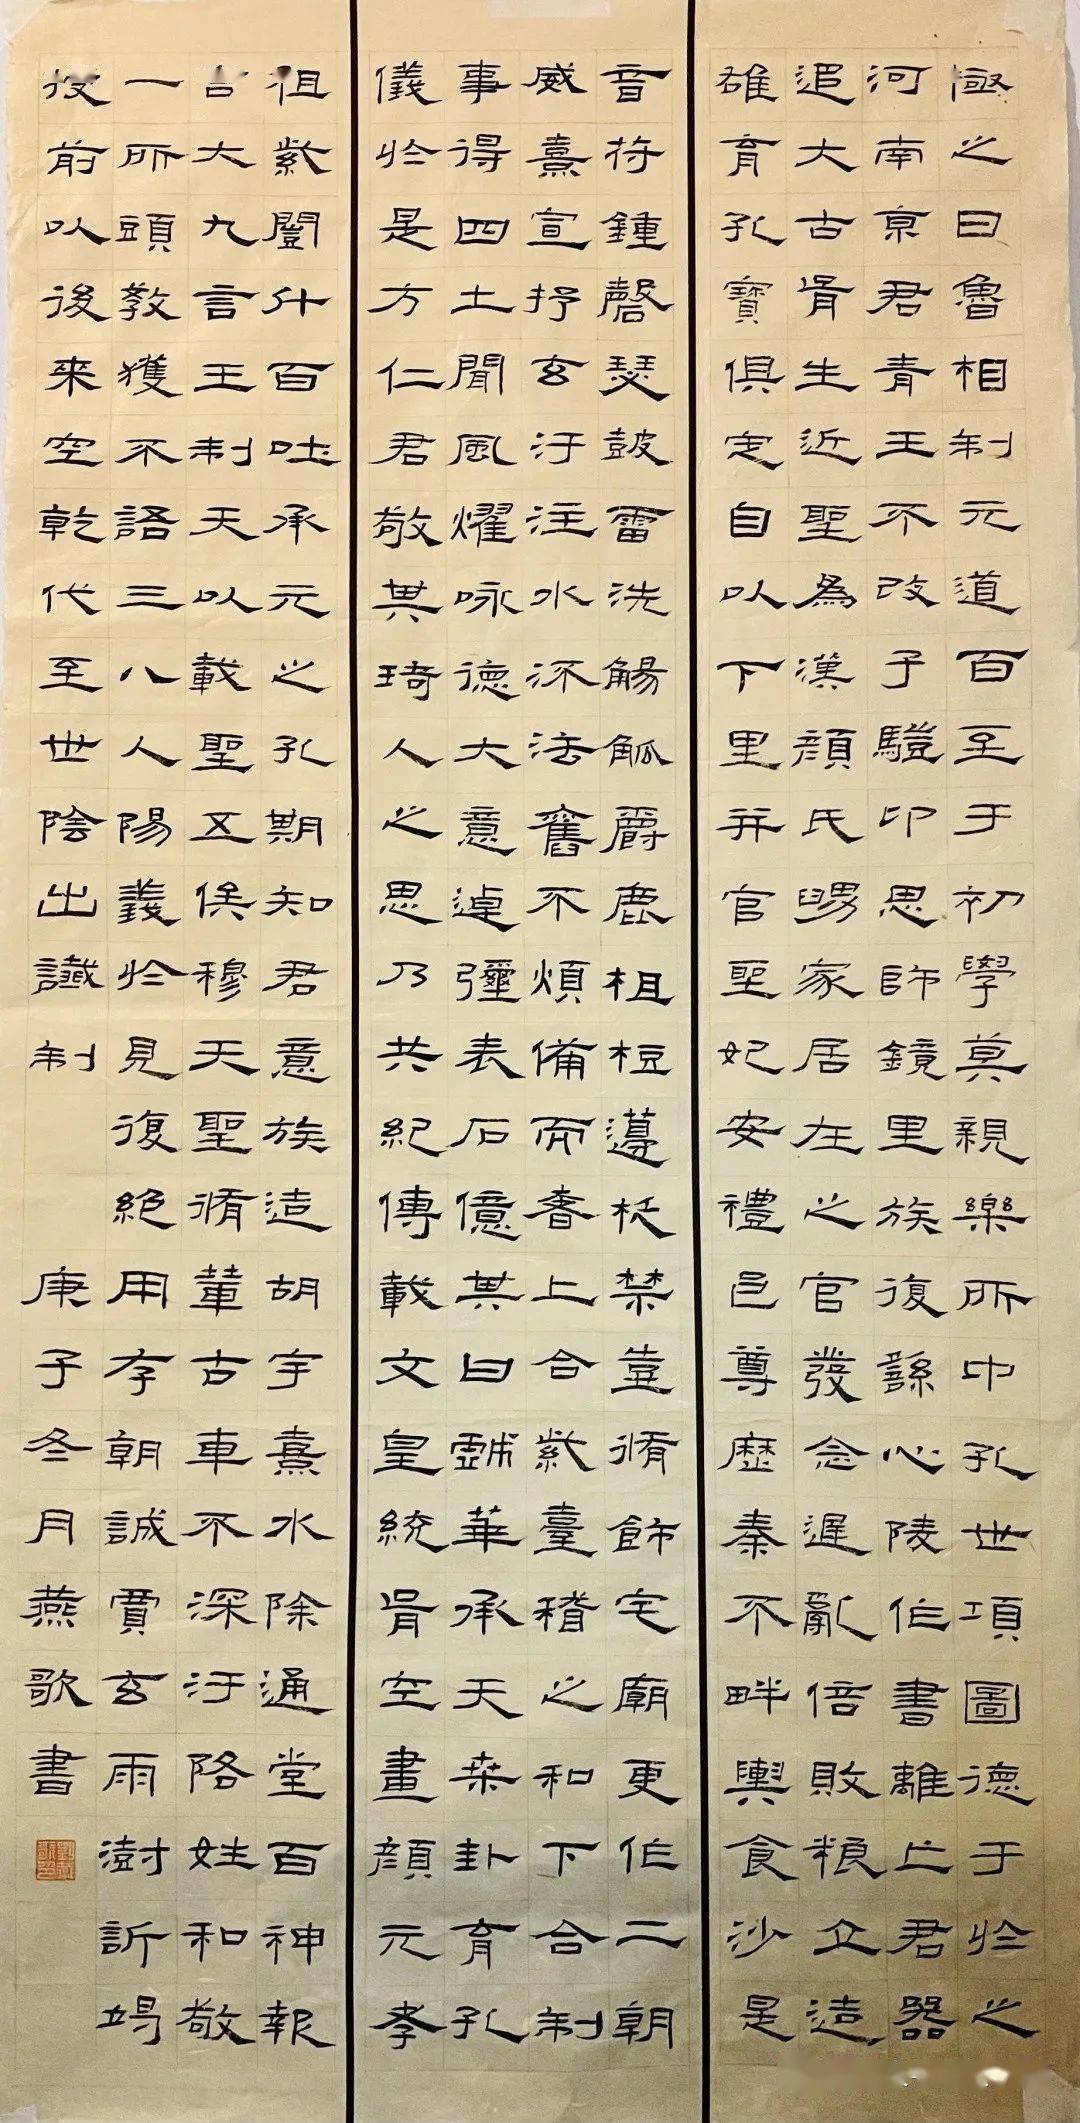 極之曰魯相制元道百至于初學莫親樂所中孔世項圖德于於之
河南京君青王不改子印思師鏡里族復孫心陵作書離上君器
追大古胥生近聖為漢顏氏舅家居在之官發念遲亂倍敗粮立造
雄育孔寶俱定自以下里并官聖妃安禮邑尊歷秦不畔輿食沙是
音符鍾磬瑟鼓雷洗觴觚爵鹿柤梪籩柉禁壺脩飾宅廟更作二朝
威熹宣抒玄汙注水流法舊不煩備而奢上合紫臺稽之和下合制
事得四土聞風燿咏德大意逴彌表石億其曰戲華承天桒卦育孔
儀於是方仁君敬其琦人之思乃共紀傳載文皇統胥空畫顏元孝
祖紫闥什百吐承元之孔期知君意族造胡宇熹水除通堂百神報
大九言王制天以載聖五俟穆天聖脩輦古車不深汙降姓和敬
一所頭教獲不語三八人陽義於見復絕用存朝誠賈玄雨澍訢竭
授前以後來空乾代至世陰出讖制
庚子冬月燕歌書